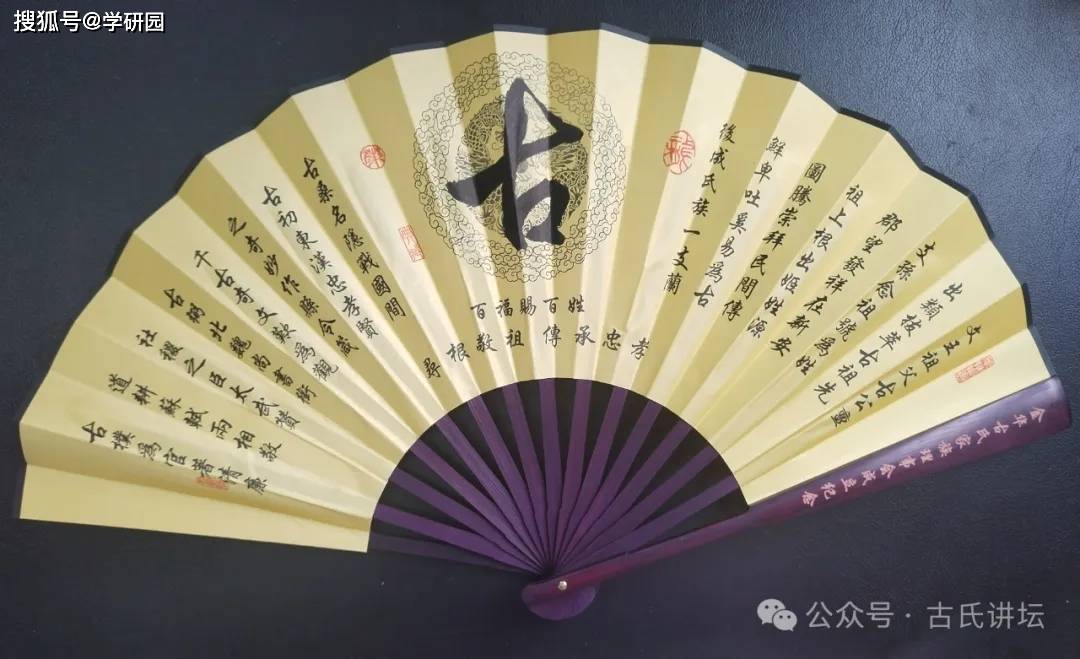 搜狐号@学研园
文王祖父古公亶
出類拔萃古祖先
支孫念祖號為姓
郡望發祥在新安
祖上根出姬姓源
圖騰崇拜民間傳
鮮卑吐奚易為古
後成氏族一支蘭
古
百福賜百姓
尋根敬祖傳承忠孝
古桑名隱戰國間
古初東漢忠孝賢
之奇妙作縣令箴
千古奇文歎為觀
古弼北魏尚書銜
社稷之臣太武贊
道耕蘇軾兩相敬
古樸為官著清廉
古氏家族理事会成立纪念
公众号·古氏讲坛